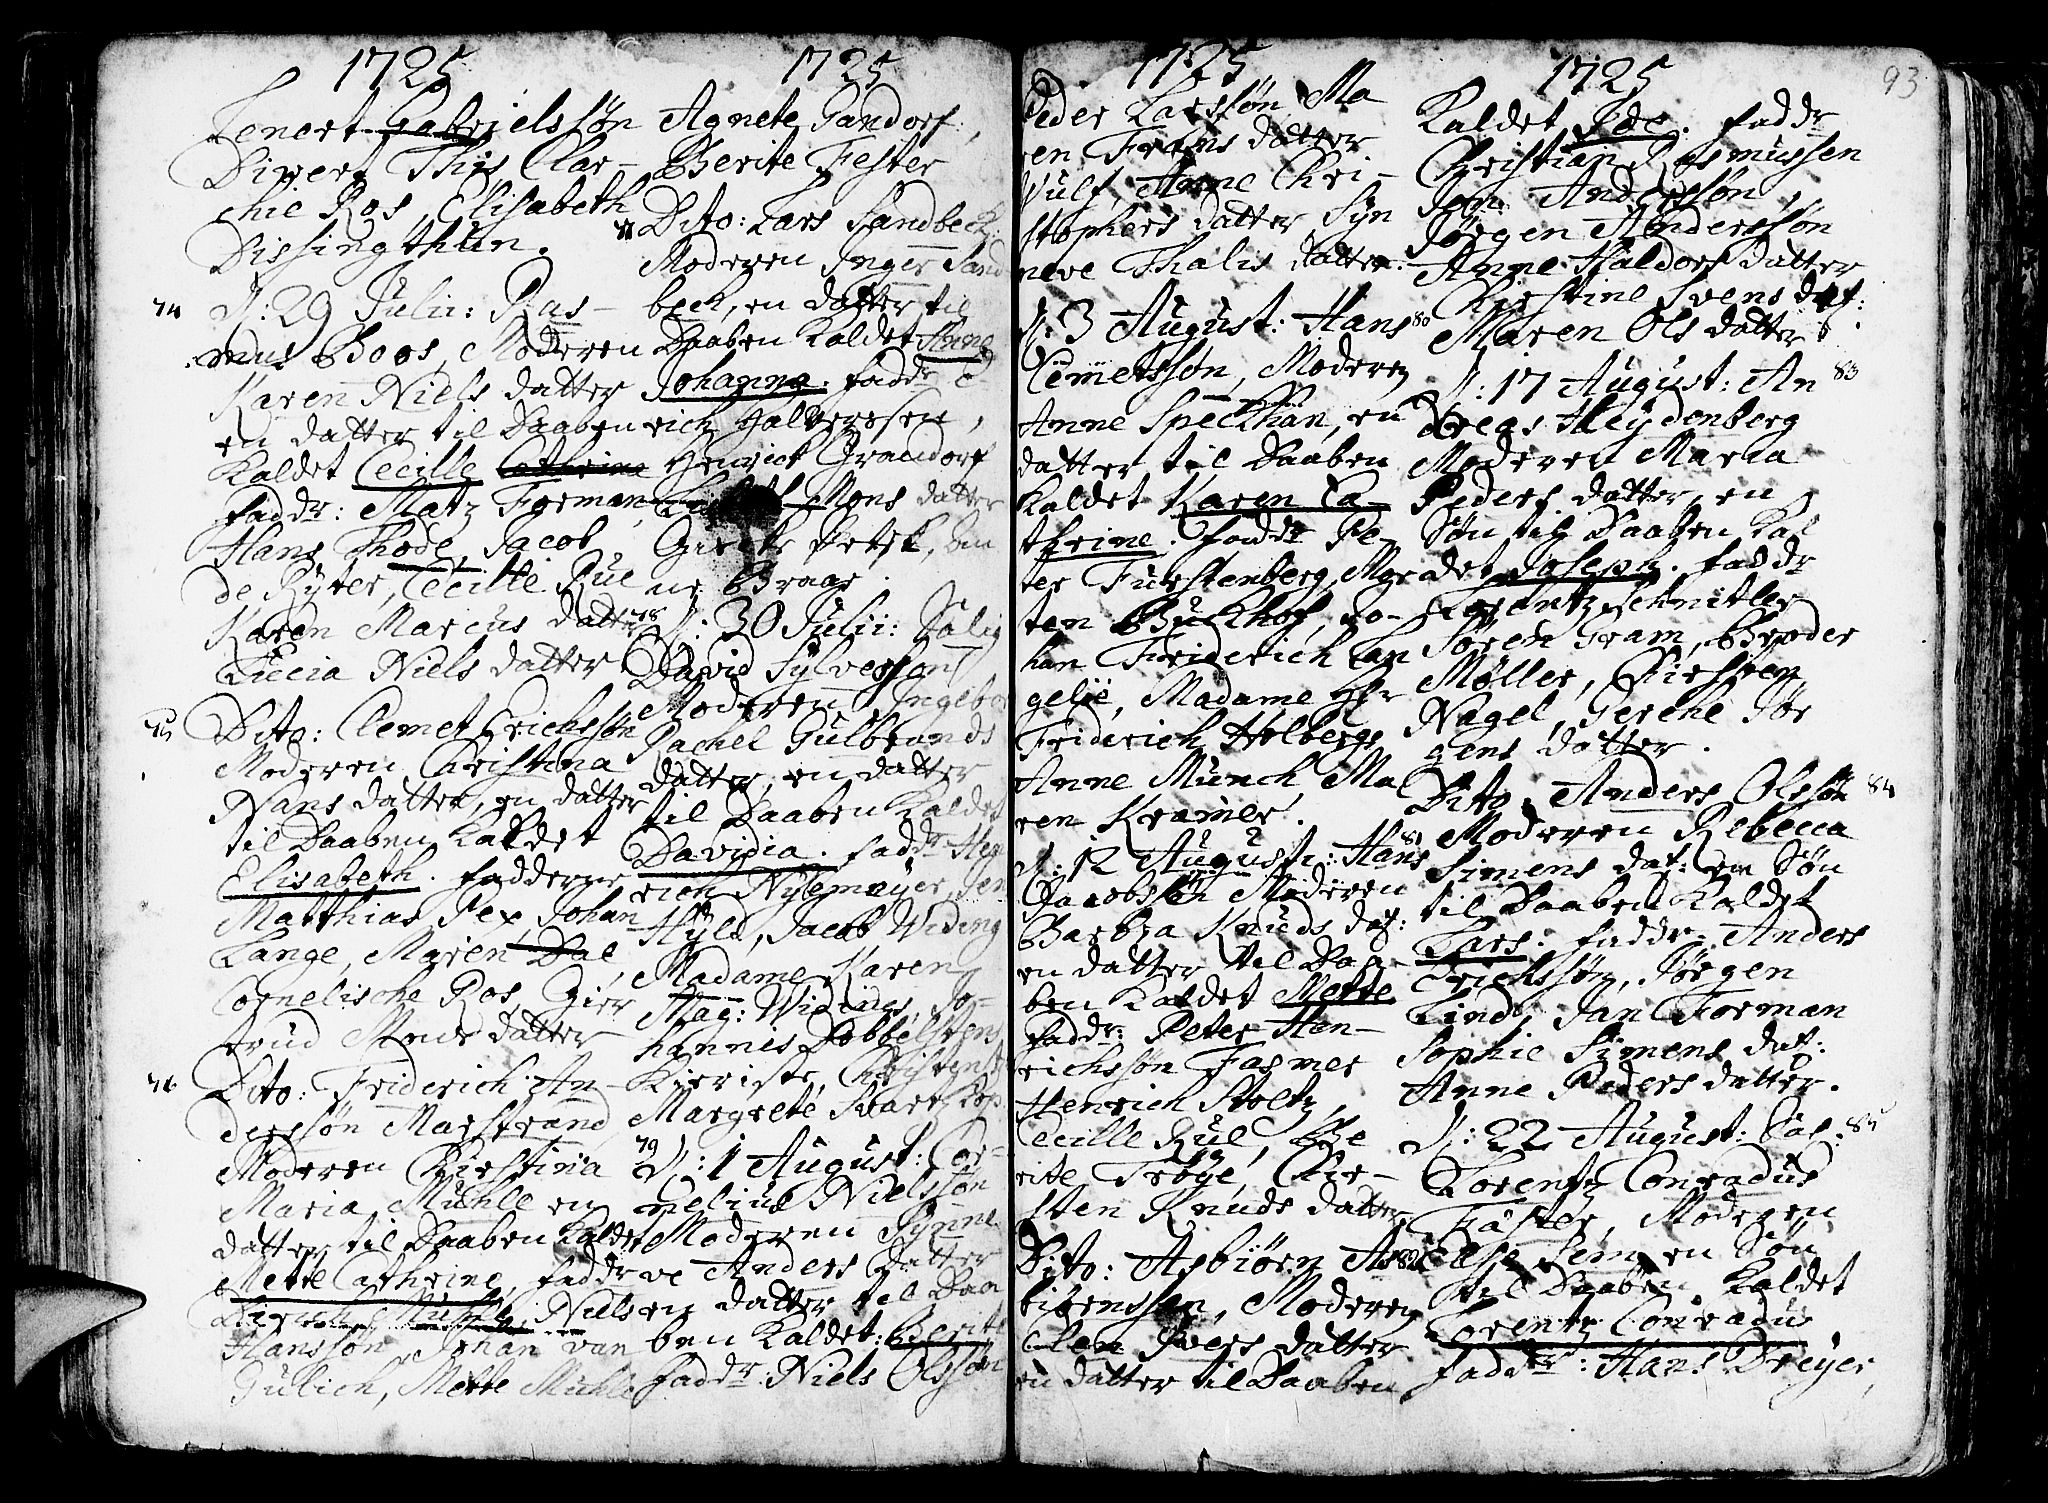 1725
Lenert Gabrielssøn
Diwert Thijs Clar-
chie Ros, Elisabeth
Dissingthun.
74 D: 29 Julii: Ras-
mus Boos, Moderen
Karen Niels datter
en datter til Daaben
Kaldet Cecille Cathrine
faddr: Matz Forman
Hans Thode, Jacob
de Ryter, Cecille Rue
Karen Marcus datter
Lucia Niels datter
75 Dito: Clemet Erichssøn
Moderen Christina
Hans datter, en datter
til Daaben Kaldet
Elisabeth. fadderne
Matthias Pex, Johan
Lange, Maren Dal
Cornelische Ros, Gier
trud Mons datter
76 Dito: Friderich An-
derssøn Marstrand
Moderen Christina
Maria Mühle en
datter til Daaben Kaldet
Mette Cathrine, faddr
Niels
Hanssøn, Johan van
Gülich, Mette Mühle
1725
Agnete Gandorf,
Berite Fester
77 Dito: Lars Sandbeck
Moderen Inger Sand
beck, en datter til
Daaben Kaldet Anne
Johanna. faddr E-
rich Halversen,
Henrich Grandorf
Mons datter
Giertr Petri, An
ne Braas.
78 D: 30 Julii: Salig
David Sylverssøn
Moderen Ingebor
Rachel Gulbrands
datter, en datter
til Daaben Kaldet
Davidia. faddr Hen
rich Nylemeyer, Jen
Hyld, Jacob Widing
Madame Karen
Mag: Widings, Jo-
hannes Dobbelstens
Kieriste, Christense
Margrete Svartzkop
79 D: 1 August: Cor-
nelius Nielssøn
Moderen Synne
ve Anders datter
en datter til Daa
ben Kaldet: Berite
faddr: Niels Olssøn
1725
Peder Larssøn Ma
ren Frans datter
Wulf, Anne Chri-
stophers datter Syn
neve Thalis datter.
D: 3 August: Hans 80
Clemetssøn, Moderen
Anne Speckhan, en
datter til Daaben
Kaldet Karen Ca-
thrine. faddr Pe-
ter Furstenberg, Mor
ten Buckhof, Jo-
han Friderich Lan
gelie, Madame Hr
Friderich Holbergs
Anne Münch, Ma
ren Kramer.
D: 12 August: Hans 81
Jacobssøn Moderen
Barbra Knuds dat:
en datter til Daa-
ben Kaldet Mette
faddr: Peter Hen-
richssøn Fasmer
Henrich Stoltz,
Cecille Rue, Be
rite Trøye, Kir-
sten Knuds datter
Dito: Asbiørn As 82
biørnssøn, Moderen
Elen Ivers datter
en datter til Daaben
1725
93
Kaldet Ide. faddr
Christian Rasmussen
Jon Anderssøn,
Jørgen Anderssøn
Anne Haldorf datter
Christine Svens dat:
Maren Ols datter.
D: 17 August: An 83
dreas Heydenberg
Moderen Maria
Peders datter, en
Søn til Daaben Kal
det Joseph. faddr
Lorentz Schnitler
Søren Gram, Broder
Møller, Kirsten
Nagel, Gereke Jør
gens datter.
Dito: Anders Olssøn 84
Moderen Rebecca
Simens dat: en Søn
til Daaben Kaldet
Lars. faddr: Anders
Erichssøn, Jørgen
Lind, Jan Forman
Sophie Simens dat:
Anne Peders datter.
D: 22 August: Sal: 85
Lorentz Conradus
Fäster, Moderen
Else Sem en Søn
til Daaben Kaldet
Lorentz Conradus
faddr: Hans Dreyer,